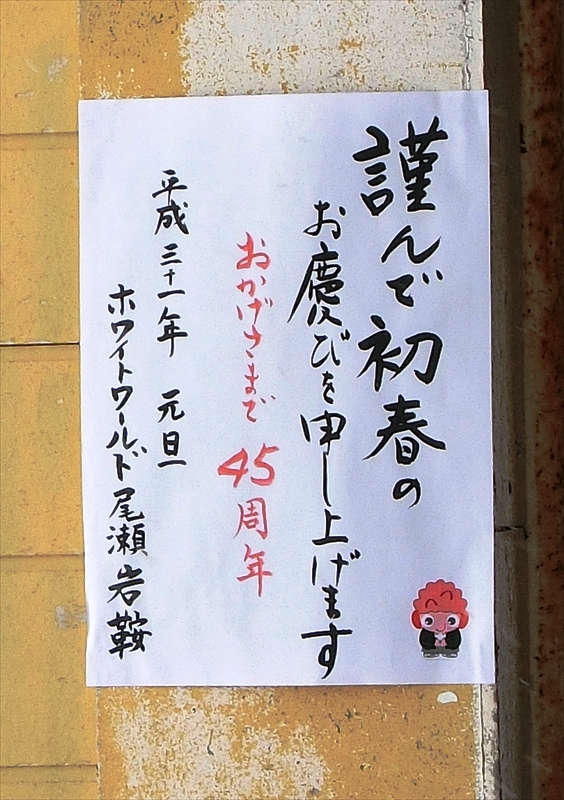 謹んで初春の
お慶びを申し上げます
おかげさまで 45周年
平成三十一年 元旦
ホワイトワールド尾瀬岩鞍